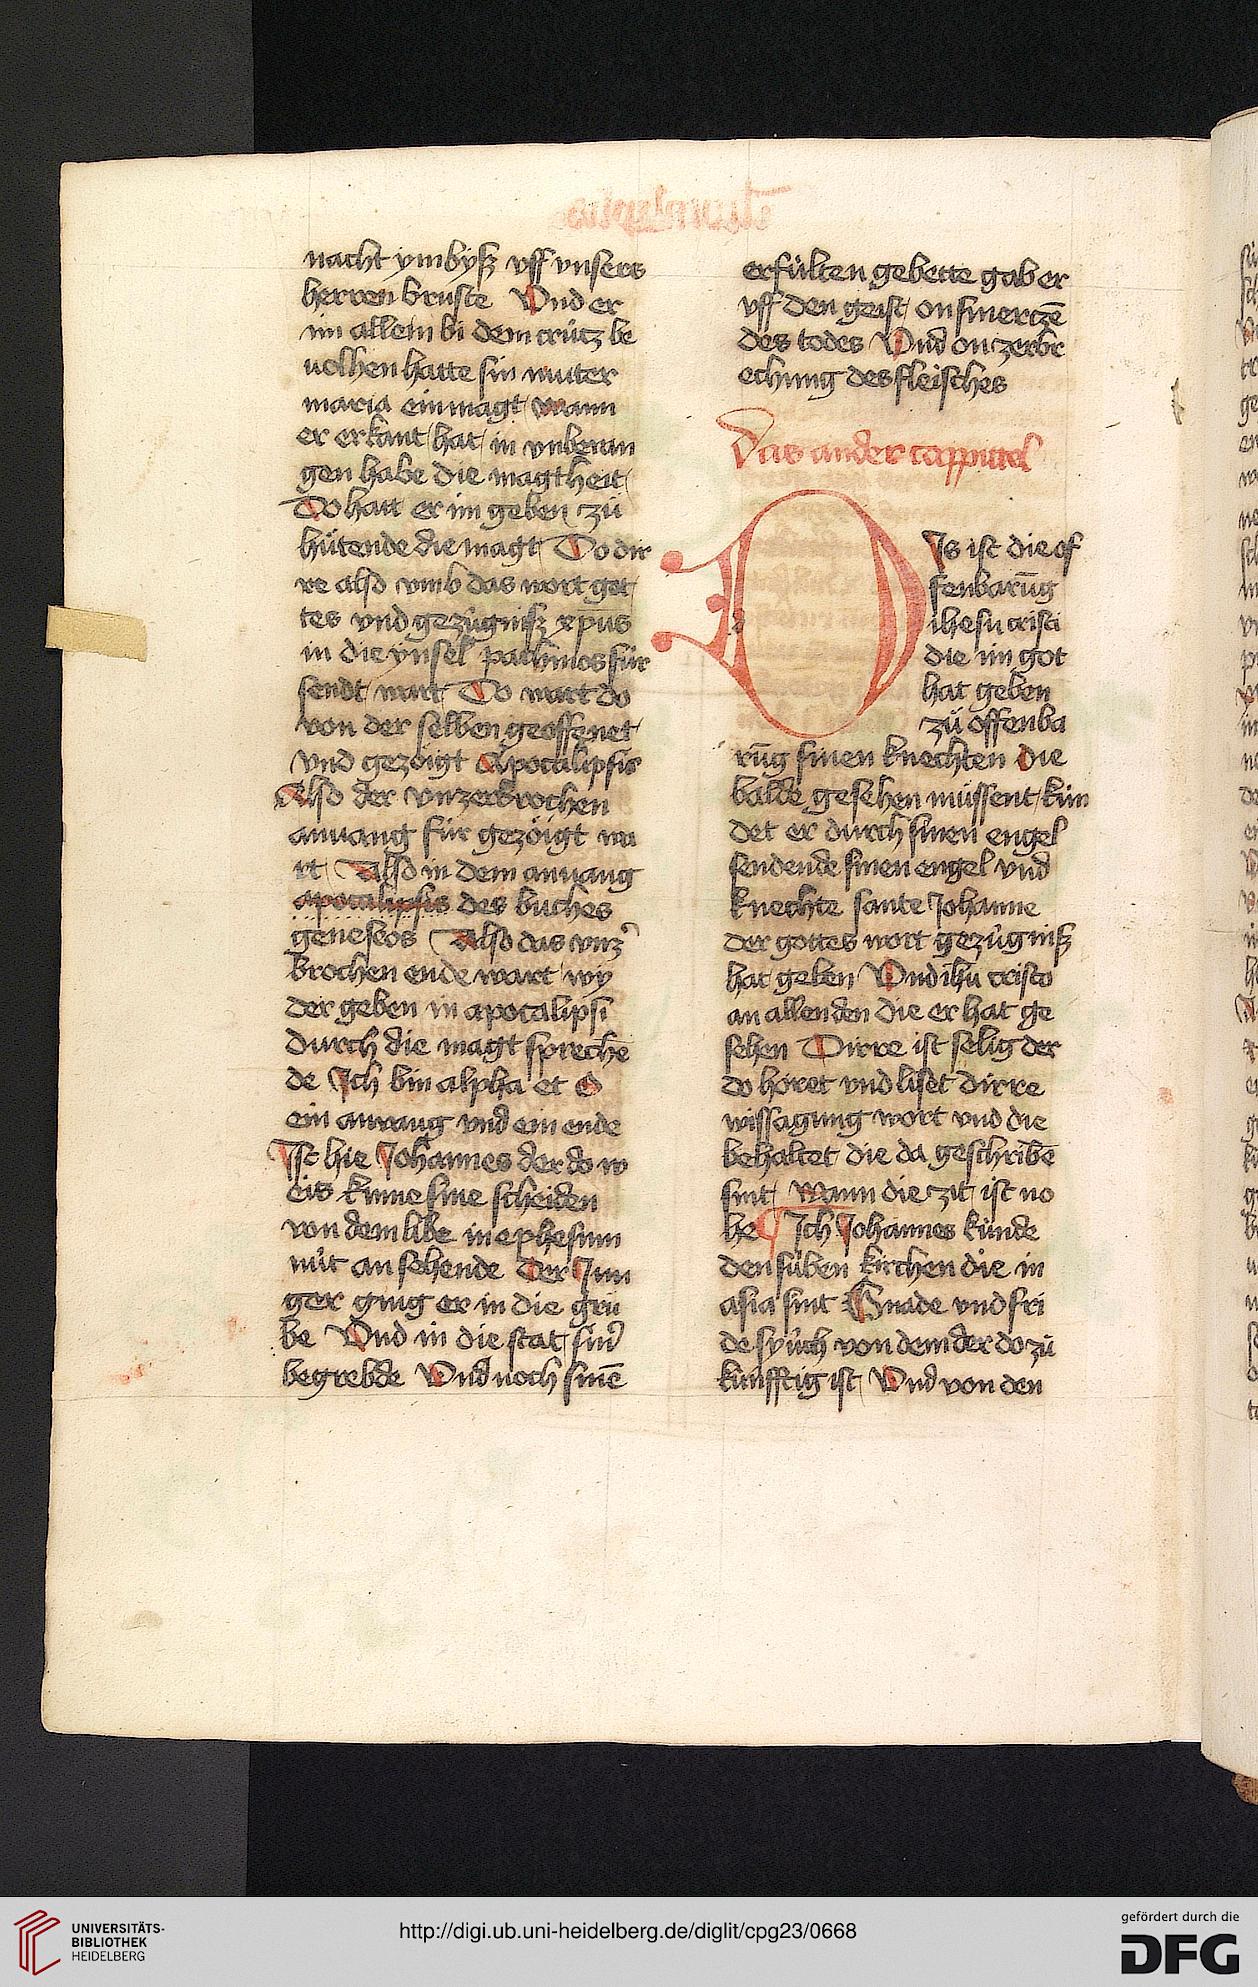 nacht ymbyß vff vnsers
herren bruste Vnd er
im allein bi dem crútz be
uolhen hatte sin muter
maria ein magt wann
er erkant hat in vnbewan
gen habe die magtheit
Do hatt er im geben zů
hútende die magt Do dir
re also vmb das wort got
tes vnd gezúgniß xpus
in die ynsel pathmos fúr
sendt wart Do wart do
von der selben geoffenet
vnd gezöigt Apocalipsis
Also der vnzerbrochen
anuang fúr gezöigt wa
rt Also in dem anuang
apocalipsis des buches
geneseos Also das vnz᷒
brochen ende wart wy
der geben in apocalipsi
durch die magt sprechē
de Ich bin alpha et O
ein anuang vnd ein ende
Ist hie Johannes der do w
eis kume sine scheiden
von dem libe in ephesum
mit an sehende Der Jun
ger ging er in die grů
be Vnd in die stat sin᷒
begrebde Vnd noch sinē
erfúlten gebette gab er
vff den geist on smerczē
des todes Vnd on zerbr
echung des fleisches
Das ander cappittel
DIs ist die of
fenbarūg
ihesu cristi
die im got
hat geben
zů offenba
rūg sinen knechten die
balde gesehen mússent kún
det er durch sinen engel
sendende sinen engel vnd
knechte sante Johanne
der gottes wort gezúgniß
hat geben Vnd ihū cristo
an allen den die er hat ge
sehen Dirre ist selig der
do höret vnd liset dirre
wissagung wort vnd die
behaltet die da geschribē
sint wann die zit ist no
he Ich Johannes kúnde
den súben kirchen die in
asia sint Gnade vnd fri
de sy úch von dem der do zů
kúnfftig ist Vnd von den
UNIVERSITÄTS-
BIBLIOTHEK
HEIDELBERG
http://digi.ub.uni-heidelberg.de/diglit/cpg23/0668
gefördert durch die
DFG